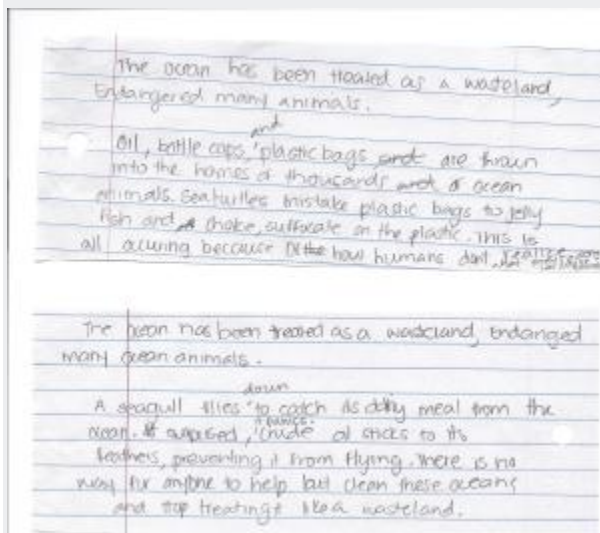 The ocean has been treated as a wasteland,
Endangered many animals.
and
Oil, bottle caps, plastic bags and are thrown
into the homes of thousands and of ocean
animals. Sea turtles mistake plastic bags to jelly
fish and choke, suffocate on the plastic. This is
all occuring because the how humans don't
The ocean has been treated as a wasteland, Endanged
many ocean animals.
down
A seagull flies to catch its daily meal from the
ocean. surprised, crude oil sticks to its
feathers, preventing it from flying. There is no
way for anyone to help but clean these oceans
and stop treating like a wasteland.